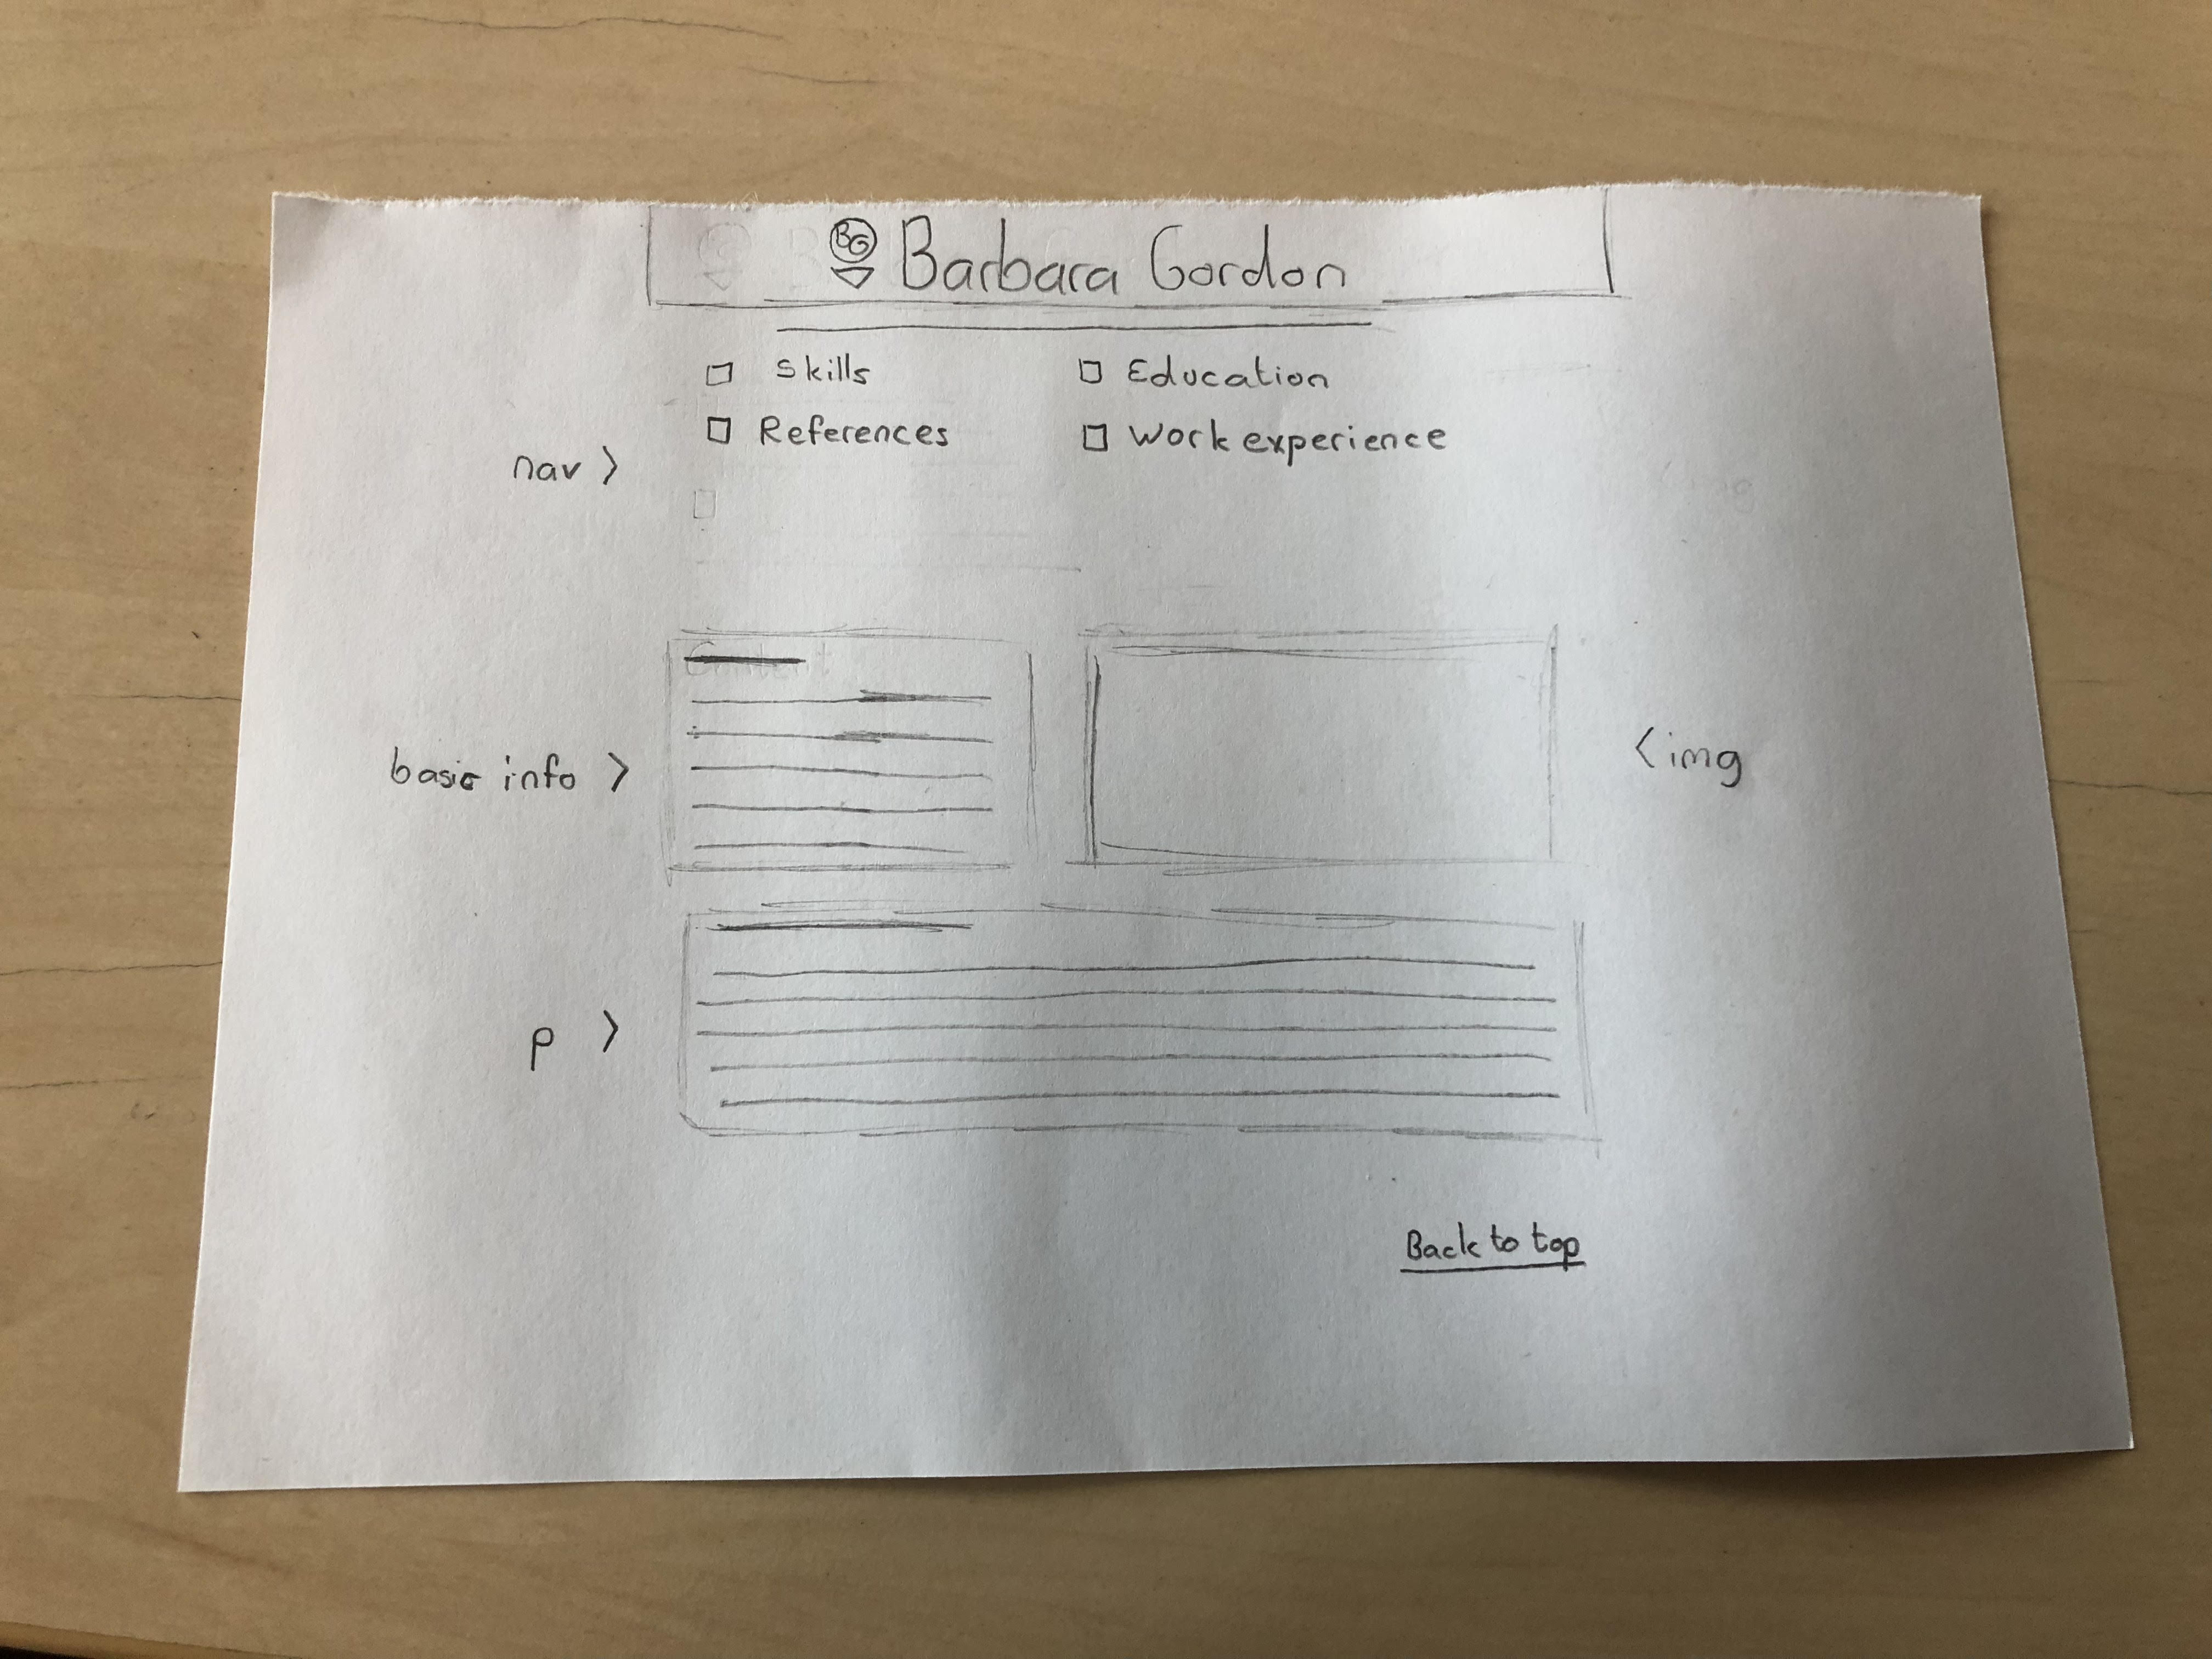 BG Barbara Gordon
Skills
Education
References
Work experience
nav >
Content
basic info >
< img
p >
Back to top